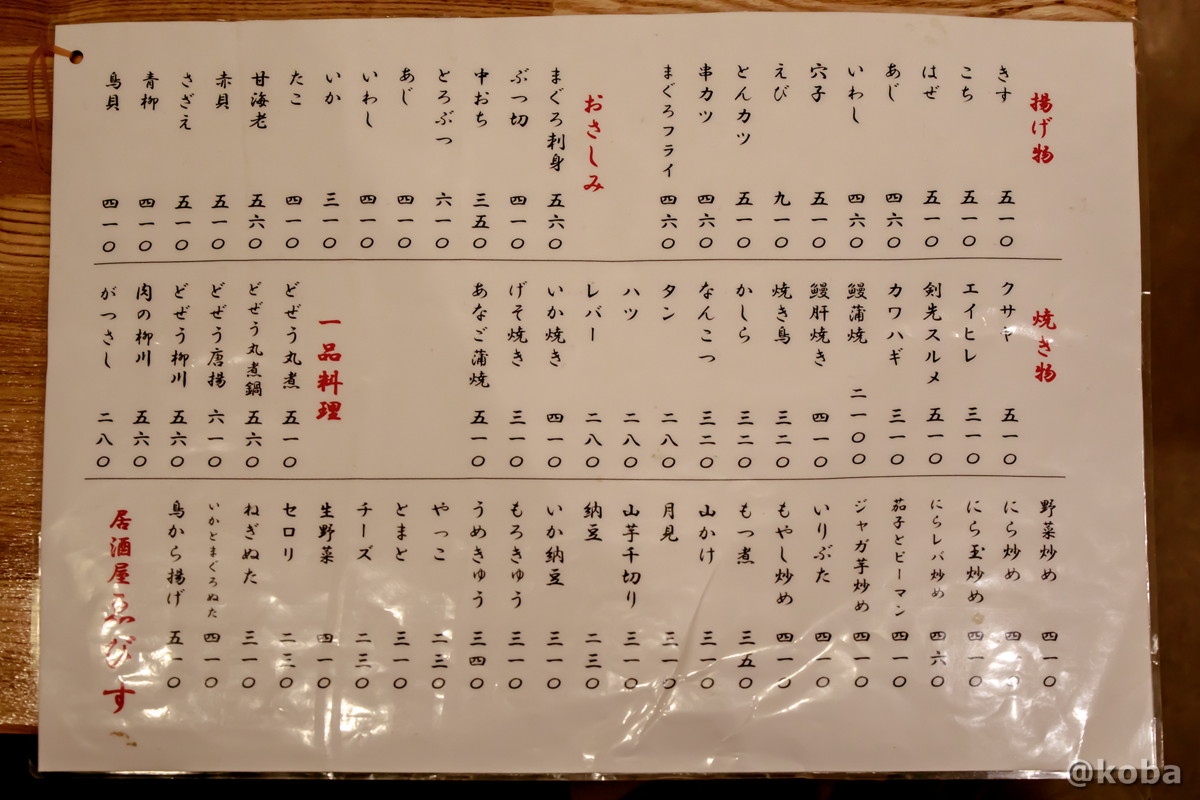 揚げ物
きす 五一〇
こち 五一〇
はぜ 五一〇
あじ 四六〇
いわし 四六〇
穴子 五一〇
えび 九一〇
とんカツ 五一〇
串カツ 四六〇
まぐろフライ 四六〇
おさしみ
まぐろ刺身 五六〇
ぶつ切 四一〇
中おち 三五〇
とろぶつ 六一〇
あじ 四一〇
いわし 四一〇
いか 三一〇
たこ 四一〇
甘海老 五六〇
赤貝 五一〇
さざえ 五一〇
青柳 四一〇
鳥貝 四一〇
焼き物
クサヤ 五一〇
エイヒレ 三一〇
剣先スルメ 五一〇
カワハギ 三一〇
鰻蒲焼 二一〇〇
鰻肝焼き 四一〇
焼き鳥 三二〇
かしら 三二〇
なんこつ 三二〇
タン 二八〇
ハツ 二八〇
レバー 二八〇
いか焼き 四一〇
げそ焼き 三一〇
あなご蒲焼 五一〇
一品料理
どぜう丸煮 五一〇
どぜう丸煮鍋 五六〇
どぜう唐揚 六一〇
どぜう柳川 五六〇
肉の柳川 五六〇
がつさし 二八〇
野菜炒め 四一〇
にら炒め 四一〇
にら玉炒め 四一〇
にらレバ炒め 四六〇
茄子とピーマン 四一〇
ジャガ芋炒め 四一〇
いりぶた 四一〇
もやし炒め 四一〇
もつ煮 三五〇
山かけ 三一〇
月見 三一〇
山芋千切り 三一〇
納豆 二三〇
いか納豆 三一〇
もろきゅう 三一〇
うめきゅう 三四〇
やっこ 二三〇
とまと 三一〇
チーズ 二三〇
生野菜 四一〇
セロリ 二三〇
ねぎぬた 三一〇
いかとまぐろぬた 四一〇
鳥から揚げ 五一〇
居酒屋ゑびす
@koba